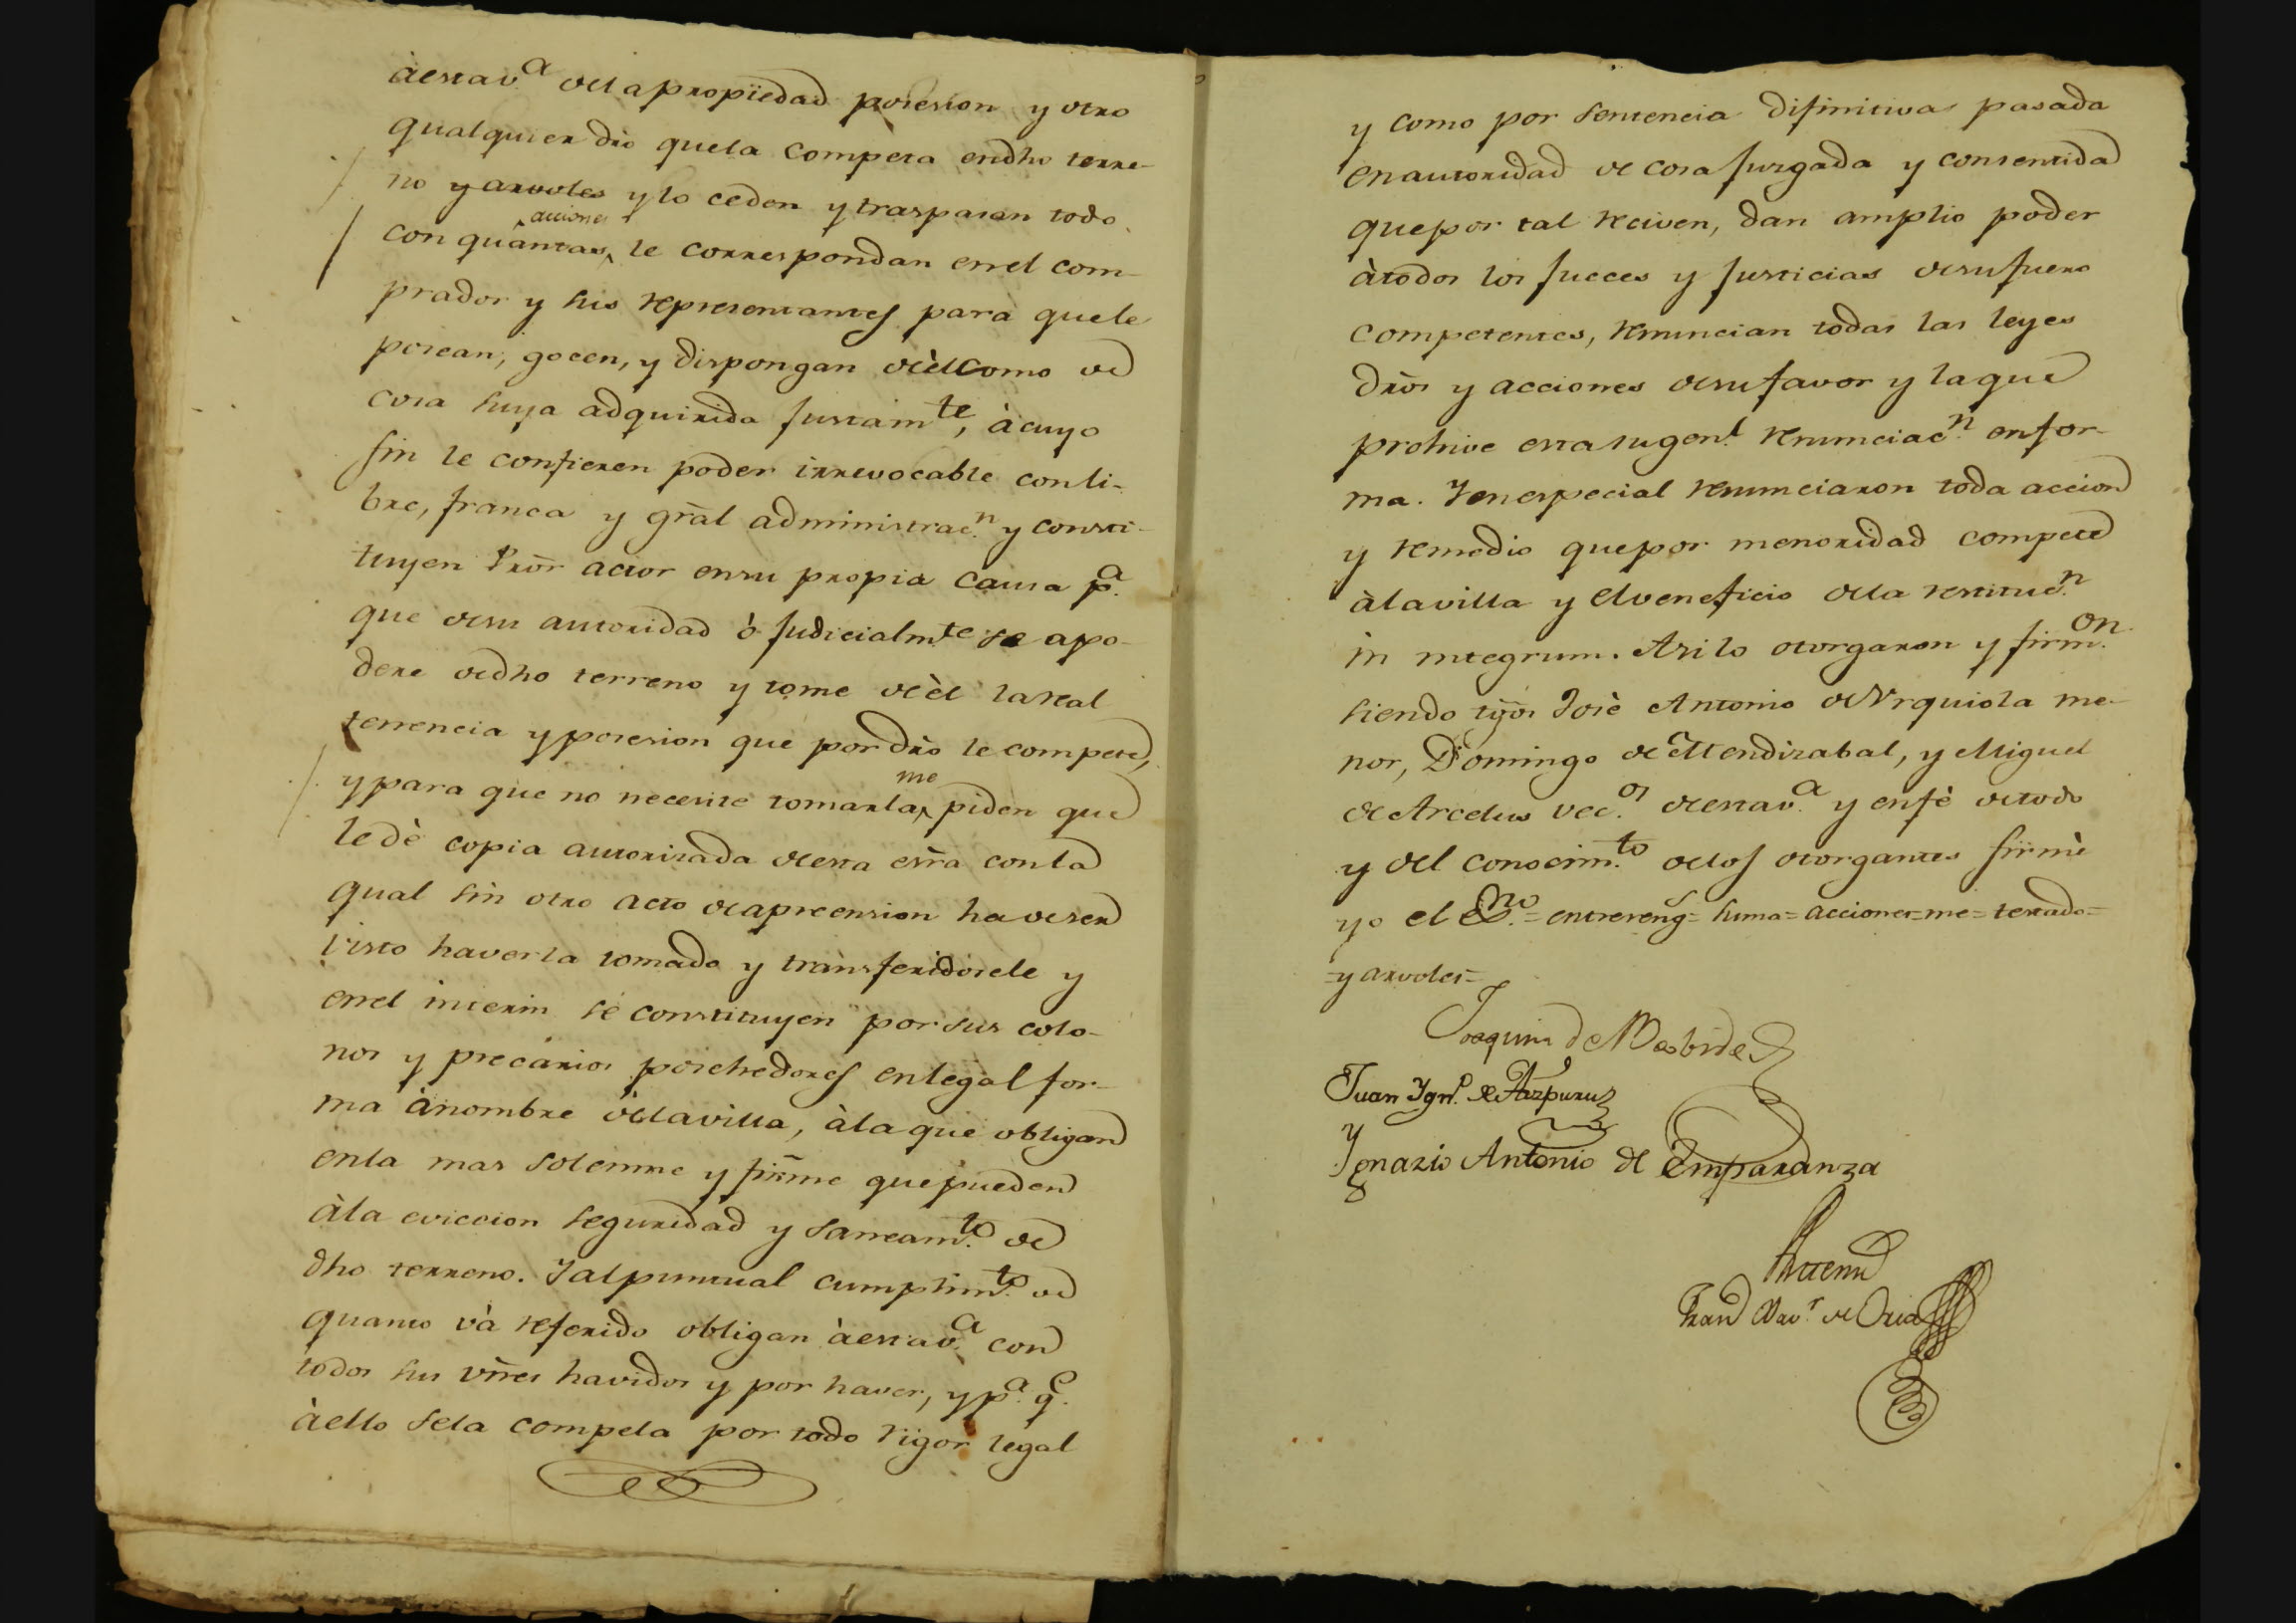 à esta v.ª de la propiedad posesion y otro
qualquier dro que la competa en dho terre-
no y arvoles y lo ceden y traspasan todo
acciones
con quantas le correspondan en el com-
prador y sus representantes para que le
posean, gocen, y dispongan de èl como de
cosa suya adquirida justam.te, à cuyo
fin le confieren poder irrevocable con li-
bre, franca y gral administrac.n y consti-
tuyen Pror actor en su propia causa p.a
que de su autoridad ò judicialm.te se apo-
dere de dho terreno y tome de èl la Real
tenencia y posesion que por dro le compete,
me
y para que no necesite tomarla piden que
le dè copia autorizada de esta esra con la
qual sin otro acto de apreension ha de ser
visto haverla tomado y transferidosele y
en el interin se constituyen por sus colo-
nos y precarios posehedores en legal for-
ma à nombre de la villa, à la que obligan
en la mas solemne y firme que pueden
à la eviccion seguridad y saneam.to de
dho terreno. Y al puntual cumplim.to de
quanto và referido obligan à esta v.ª con
todos sus vnes havidos y por haver, y p.a q.e
à ello se la compela por todo rigor legal
y como por sentencia difinitiva pasada
en autoridad de cosa juzgada y consentida
que por tal reciven, dan amplio poder
à todos los jueces y justicias de su fuero
competentes, renuncian todas las leyes
dros y acciones de su favor y la que
prohive esta su gen.l renunciac.n en for-
ma. Y en especial renunciaron toda accion
y remedio que por menoridad compete
à la villa y el veneficio de la restituc.n
in integrum. Asi lo otorgaron y firm.on
siendo tgos Josè Antonio de Urquiola me-
nor, Domingo de Mendizabal, y Miguel
de Arcelus vec.os de esta v.ª y en fè de todo
y del conocim.to de los otorgantes firmè
yo el Es.no = entrereng.s = suma = acciones = me = testado =
= y arvoles =
Joaquin de
Juan Ygn.o de Aizpuru
Ygnazio Antonio de Emparanza
Antemi
Fran.co Xav.r de Oria